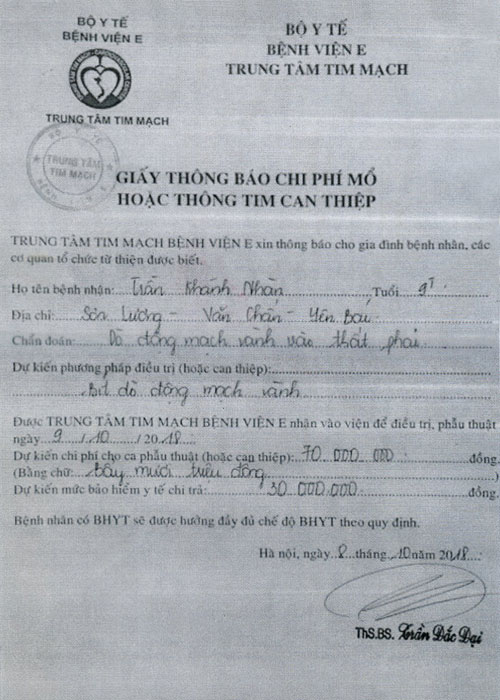 BỘ Y TẾ
BỆNH VIỆN E
TRUNG TÂM TIM MẠCH
BỘ Y TẾ
BỆNH VIỆN E
TRUNG TÂM TIM MẠCH
TRUNG TÂM
TIM MẠCH
GIẤY THÔNG BÁO CHI PHÍ MỔ
HOẶC THÔNG TIM CAN THIỆP
TRUNG TÂM TIM MẠCH BỆNH VIỆN E xin thông báo cho gia đình bệnh nhân, các
cơ quan tổ chức từ thiện được biết.
Họ tên bệnh nhân: Trần Khánh Nhàn Tuổi 9T
Địa chỉ: Sơn Lương - Văn Chấn - Yên Bái
Chẩn đoán: Dò động mạch vành vào thất phải
Dự kiến phương pháp điều trị (hoặc can thiệp):
Bít dò động mạch vành
Được TRUNG TÂM TIM MẠCH BỆNH VIỆN E nhân vào viện để điều trị, phẫu thuật
ngày 9 /10 /2018
Dự kiến chi phí cho ca phẫu thuật (hoặc can thiệp): 70.000.000 đồng.
(Bằng chữ: bảy mươi triệu đồng )
Dự kiến mức bảo hiểm y tế chi trả: 30.000.000 đồng.
Bệnh nhân có BHYT sẽ được hưởng đầy đủ chế độ BHYT theo quy định.
Hà nội, ngày 8 tháng 10 năm 2018
ThS.BS. Trần Đắc Đại